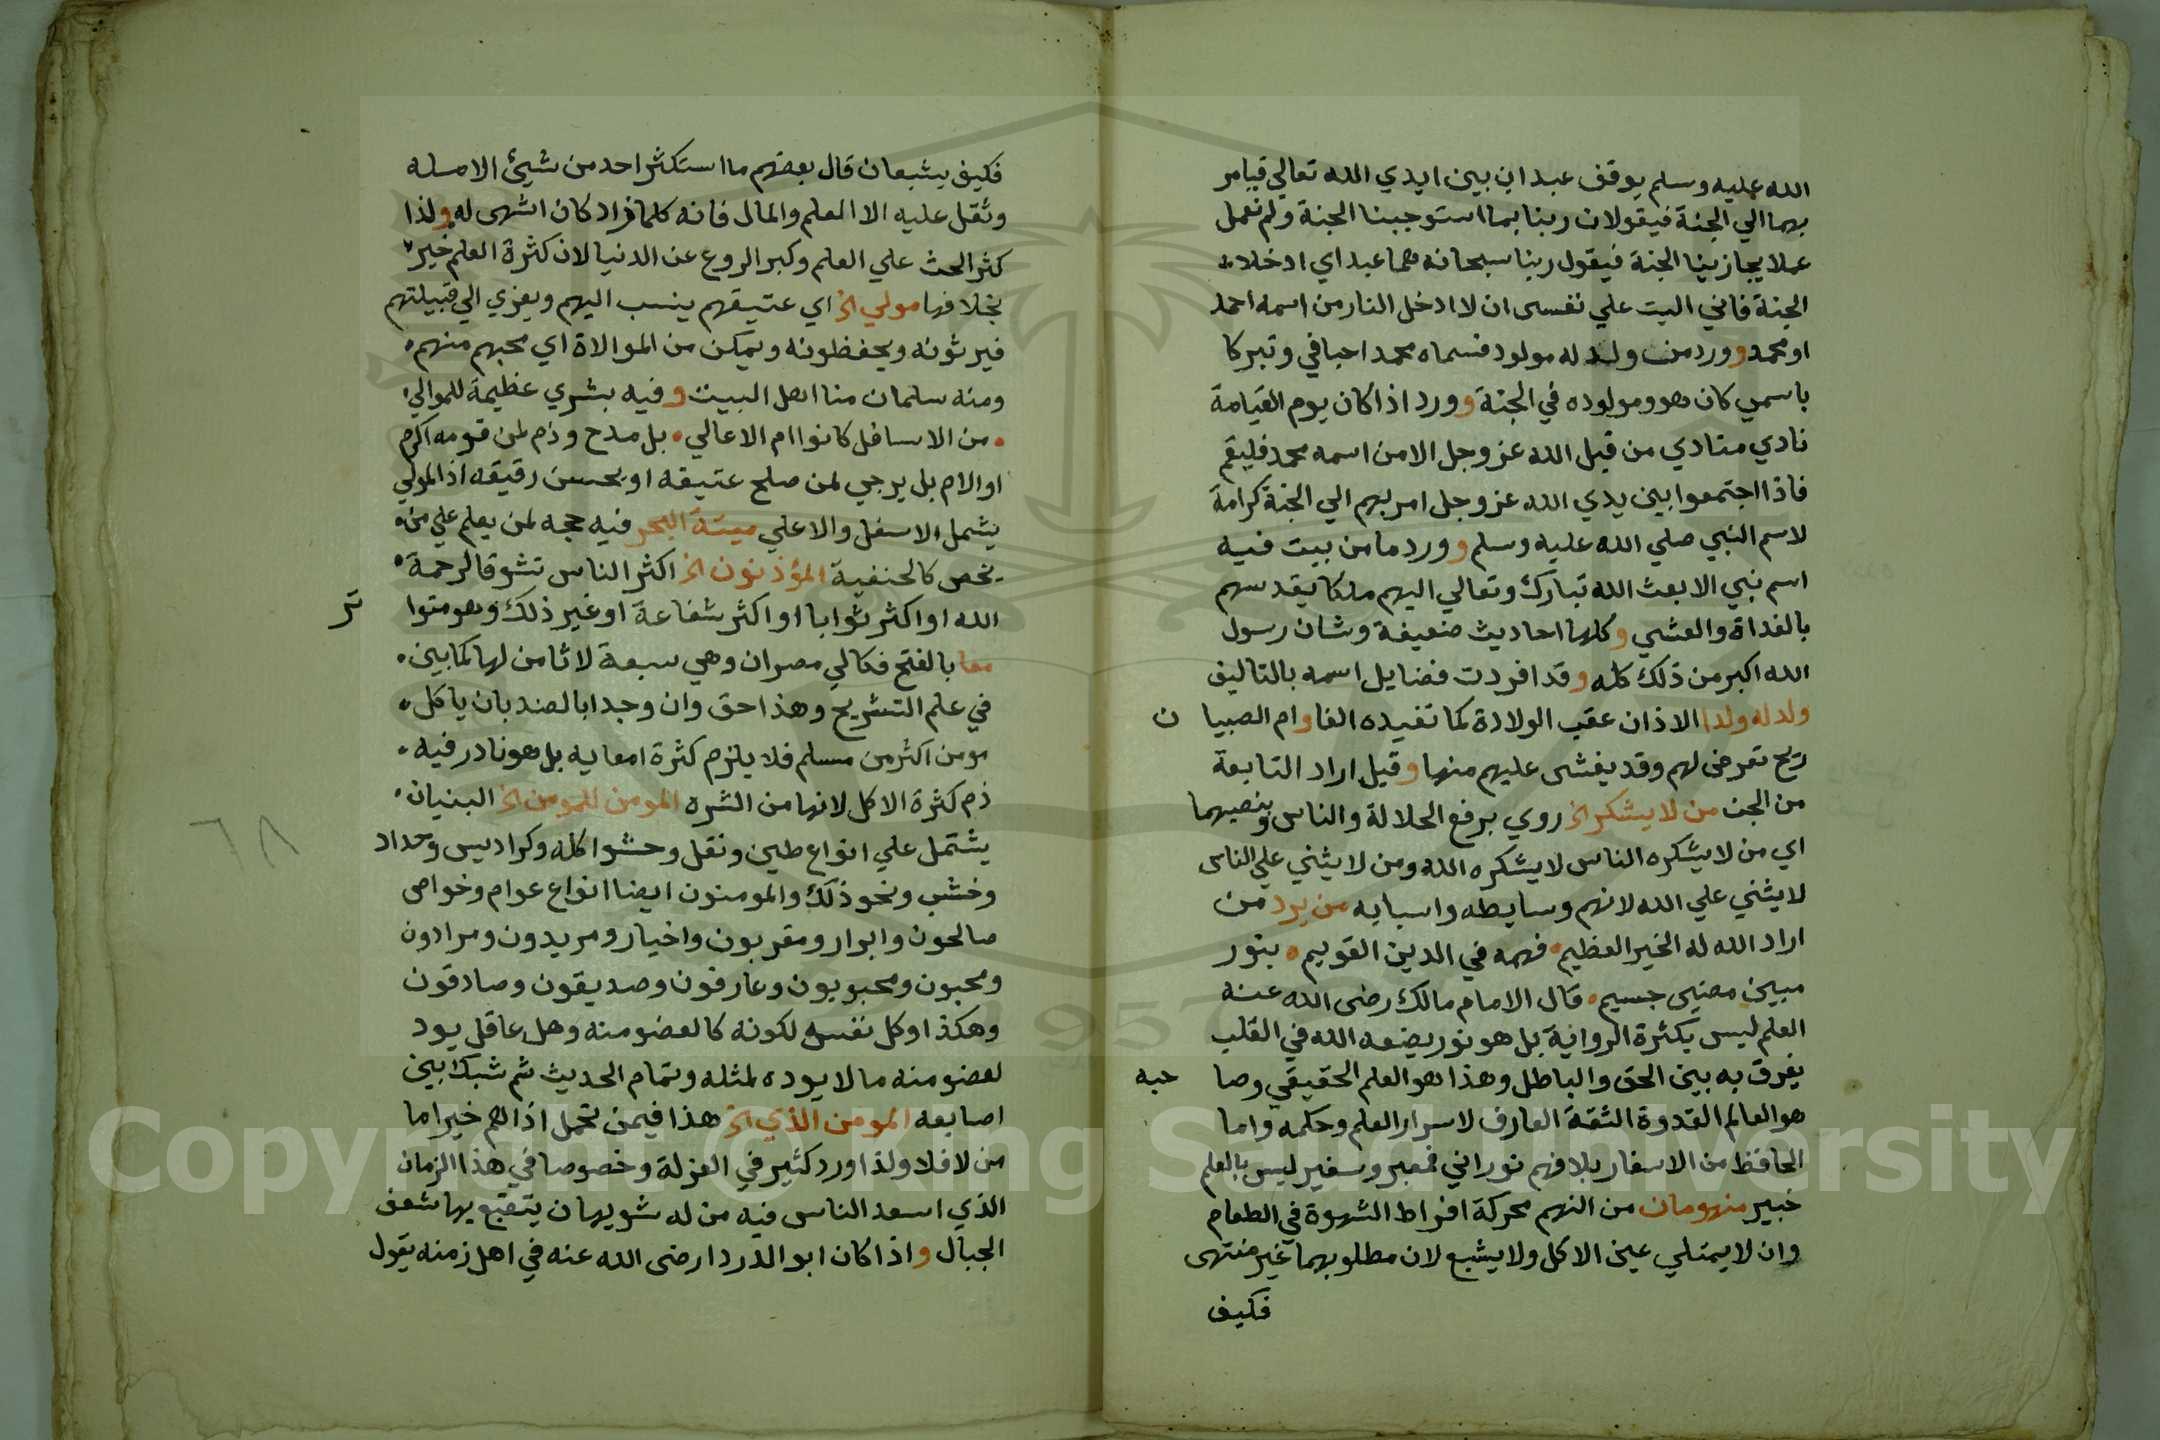 الله عليه وسلم يوقف عبدان بين ايدي الله تعالي فيامر
بهما الي الجنة فيقولان ربنا بما استوجبنا الجنة ولم نعمل
عملا يجازينا الجنة فيقول ربنا سبحانه لهما عبداي ادخلا
الجنة فاني اليت علي نفسى ان لا ادخل النار من اسمه احمد
او محمد وورد من ولد له مولود فسماه محمد احبا في وتبركا
باسمي كان هو ومولوده في الجنة وورد اذا كان يوم القيامة
نادي منادي من قبل الله عز وجل الا من اسمه محمد فليقم
فاذا اجتمعوا بين يدي الله عز وجل امر بهم الي الجنة كرامة
لاسم النبي صلي الله عليه وسلم وورد ما من بيت فيه
اسم نبي الا بعث الله تبارك وتعالي اليهم ملكا يقدسهم
بالغداة والعشي وكلها احاديث ضعيفة وشان رسول
الله اكبر من ذلك كله وقد افردت فضايل اسمه بالتاليف
ولد له ولدا الاذان عقب الولادة كما تفيده الفا وام الصبيان
ريح تعرض لهم وقد يغشى عليهم منها وقيل اراد التابعة
من الجن من لا يشكر الخ روي برفع الجلالة والناس ونصبهما
اي من لا يشكره الناس لا يشكره الله ومن لا يثني علي الناس
لا يثني علي الله لانهم وسايطه واسبابه من يرد من
اراد الله له الخير العظيم فهمه في الدين القويم بنور
مبين مضيى جسيم قال الامام مالك رضى الله عنه
العلم ليس بكثرة الرواية بل هو نور يضعه الله في القلب
يفرق به بين الحق والباطل وهذا هو العلم الحقيقي وصاحبه
هو العالم القدوة الثقة العارف لاسرار العلم وحكمه واما
الحافظ من الاسفار بلا فهم نوراني فمعبر وسفير ليس بالعلم
خبير منهومان من النهم محركة افراط الشهوة في الطعام
وان لا يمتلي عين الاكل ولا يشبع لان مطلوبهما غير منتهى
فكيف
فكيف يشبعان قال بعضهم ما استكثر احد من شيئ الا مله
وثقل عليه الا العلم والمال فانه كلما زاد كان اشهى له ولذا
كثر الحث علي العلم وكبر الروع عن الدنيا لان كثرة العلم خير
بخلافها مولي الخ اي عتيقهم ينسب اليهم ويعزي الي قبيلتهم
فيرثونه ويحفظونه ويمكن من الموالاة اي محبهم منهم
ومنه سلمان منا اهل البيت وفيه بشري عظيمة للموالي
من الاسافل كانوا ام الاعالي بل مدح وذم لمن قومه اكرم
او الام بل يرجي لمن صلح عتيقه او يحسن رقيقه اذ المولي
يشمل الاسفل والاعلي ميتة البحر فيه حجه لمن يعلم علي من
يخص كالحنفية المؤذنون الخ اكثر الناس تشوقا لرحمة
الله او اكثر ثوابا او اكثر شفاعة او غير ذلك وهو متواتر
معا بالفتح فكالي مصران وهي سبعة لا ثامن لها كما بين
في علم التشريح وهذا حق وان وجدا بالضد بان ياكل
مومن اكثر من مسلم فلا يلزم كثرة امعايه بل هو نادر فيه
ذم كثرة الاكل لانها من الشره المومن للمومن الخ البنيان
يشتمل علي انواع طين ونقل وحشوا كله وكراديس وحداد
٦٨
وخشب ونحو ذلك والمومنون ايضا انواع عوام وخواص
صالحون وابرار ومقربون واخيار ومريدون ومرادون
ومحبون ومحبوبون وعارفون وصديقون وصادقون
وهكذا وكل نفسه لكونه كالعضو منه وهل عاقل يود
لعضو منه ما لا يوده لمثله وتمام الحديث ثم شبك بين
اصابعه المومن الذي الخ هذا فيمن تحمل اذاهم خير اما
من لا فلا ولذا ورد كثير في العزلة وخصوصا في هذا الزمان
الذي اسعد الناس فيه من له شويهان يتتبع بها شعف
الجبال واذا كان ابو الدردا رضى الله عنه في اهل زمنه يقول
Copyright © King Saud University
1957